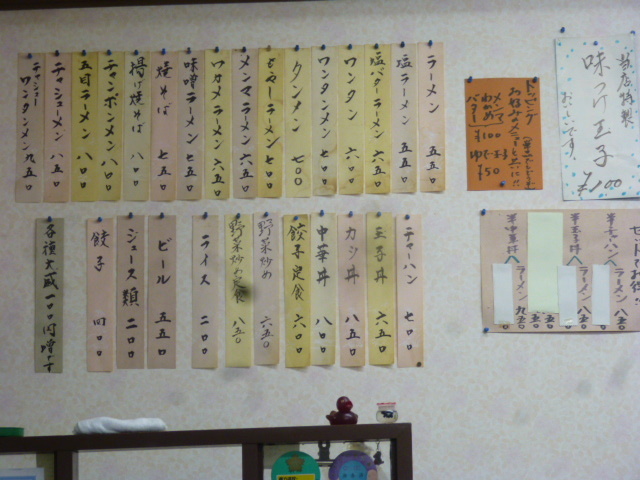 ラーメン 五五〇
塩ラーメン 五五〇
塩バターラーメン 六五〇
ワンタン 六〇〇
ワンタンメン 七〇〇
タンメン 七〇〇
もやしラーメン 七〇〇
メンマラーメン 六五〇
ワカメラーメン 六五〇
味噌ラーメン 七五〇
焼そば 七五〇
揚げ焼そば 八〇〇
チャンポンメン 八〇〇
五目ラーメン 八〇〇
チャーシューメン 八五〇
チャーシューワンタンメン 九五〇
トッピング
お好みのメニューと共に!!
メンマ
わかめ
バター
¥100
ゆで玉子
¥50
当店特製
味つけ玉子
おいしいです。
¥100
チャーハン 七〇〇
玉子丼 六五〇
カツ丼 八五〇
中華丼 八〇〇
餃子定食 六〇〇
野菜炒め 六五〇
野菜炒め定食 八五〇
ライス 二〇〇
ビール 五五〇
ジュース類 二〇〇
餃子 四〇〇
各種大盛一〇〇円増です
半チャーハン
ラーメン 八五〇
半玉子丼
ラーメン 八五〇
半中華丼
ラーメン 九五〇